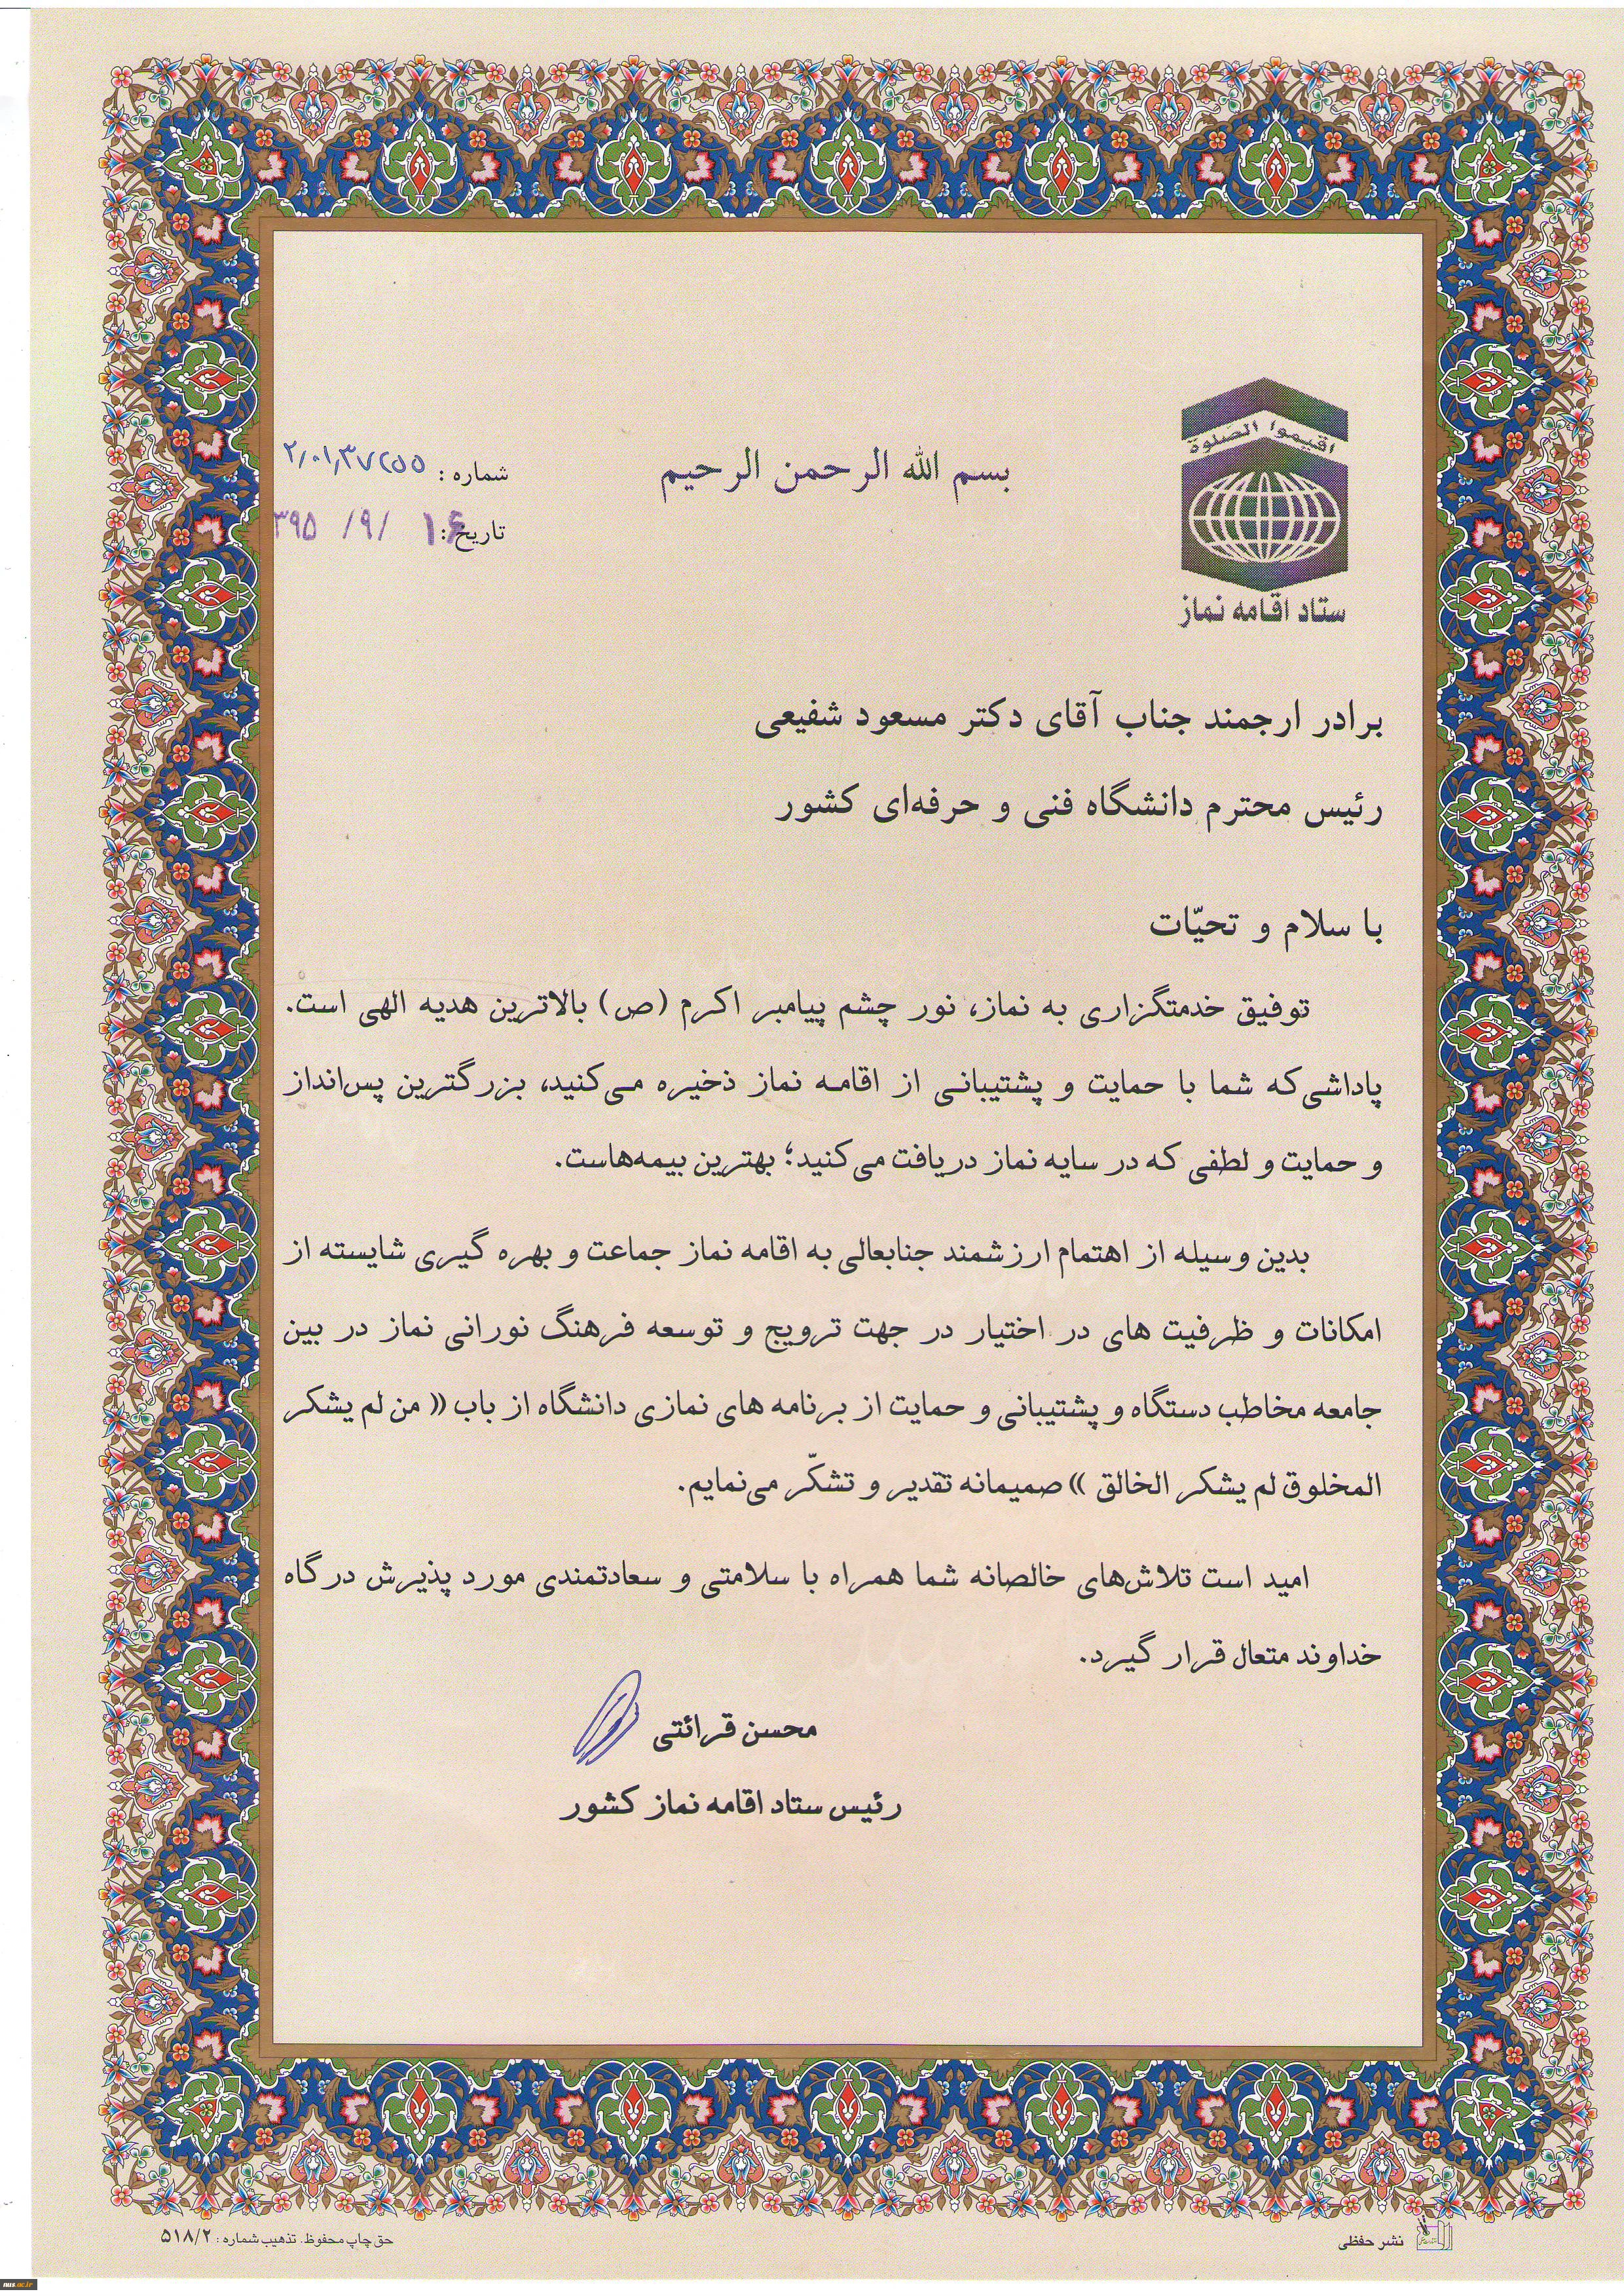 اقیموا الصلوة
ستاد اقامه نماز
بسم الله الرحمن الرحیم
شماره :
تاریخ: ۱۶ /۹/ ۳۹۵
برادر ارجمند جناب آقای دکتر مسعود شفیعی
رئیس محترم دانشگاه فنی و حرفه‌ای کشور
با سلام و تحیّات
توفیق خدمتگزاری به نماز، نور چشم پیامبر اکرم (ص) بالاترین هدیه الهی است.
پاداشی‌که شما با حمایت و پشتیبانی از اقامه نماز ذخیره می‌کنید، بزرگترین پس‌انداز
و حمایت و لطفی که در سایه نماز دریافت می‌کنید؛ بهترین بیمه‌هاست.
بدین وسیله از اهتمام ارزشمند جنابعالی به اقامه نماز جماعت و بهره گیری شایسته از
امکانات و ظرفیت های در اختیار در جهت ترویج و توسعه فرهنگ نورانی نماز در بین
جامعه مخاطب دستگاه و پشتیبانی و حمایت از برنامه های نمازی دانشگاه از باب « من لم یشکر
المخلوق لم یشکر الخالق » صمیمانه تقدیر و تشکّر می‌نمایم.
امید است تلاش‌های خالصانه شما همراه با سلامتی و سعادتمندی مورد پذیرش درگاه
خداوند متعال قرار گیرد.
محسن قرائتی
رئیس ستاد اقامه نماز کشور
نشر حفظی
حق چاپ محفوظ. تذهیب شماره : ۵۱۸/۲